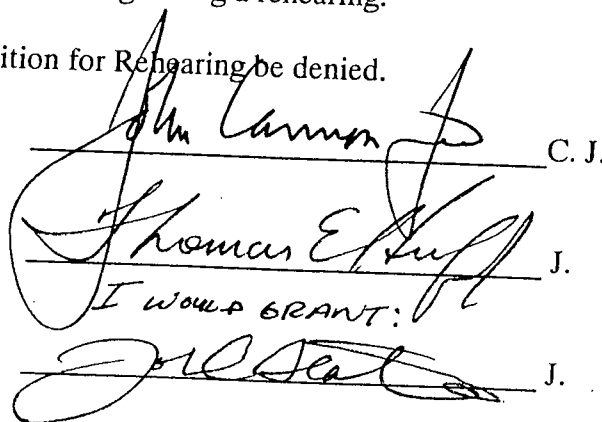 a rehearing.
ition for Rehearing be denied.
John Cannon Jr C. J.
Thomas E Huff J.
I WOULD GRANT:
J.